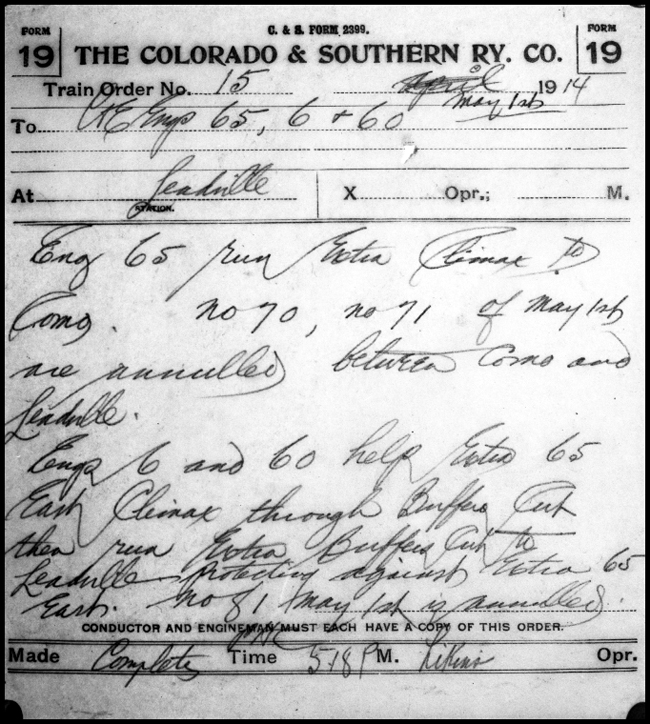 C. & S. FORM 2399.
FORM 19 THE COLORADO & SOUTHERN RY. CO. FORM 19
Train Order No. 15 April 1914
May 1st
To C&E Engs 65, 6 + 60
At Leadville X Opr.; M.
STATION.
Eng 65 run Extra Climax to
Como. No 70, No 71 of May 1st
are annulled between Como and
Leadville.
Engs 6 and 60 help Extra 65
East Climax through Buffers Cut
then run Extra Buffers Cut to
Leadville protecting against Extra 65
East. No 81 May 1st is annulled.
CONDUCTOR AND ENGINEMAN MUST EACH HAVE A COPY OF THIS ORDER.
Made Complete Time 518 P M. Opr.